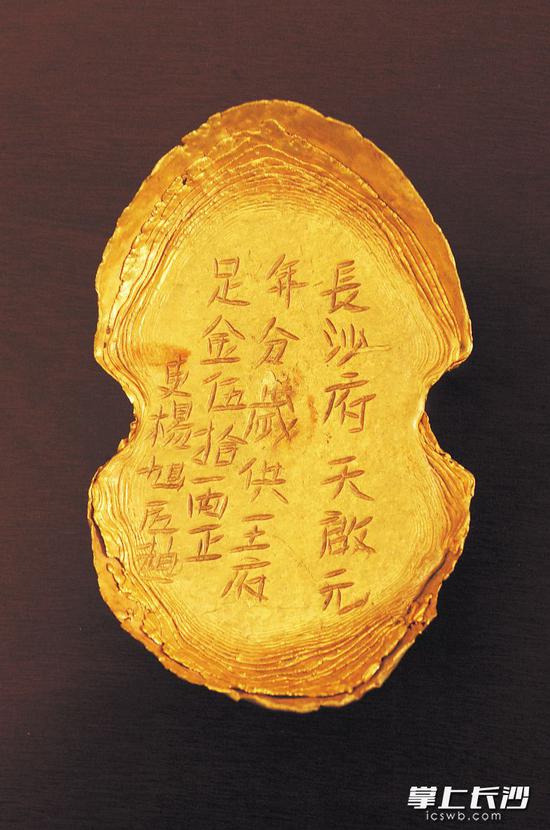 長沙府天啟元
年分歲供王府
足金伍拾兩正
吏楊旭匠
掌上长沙
icswb.com